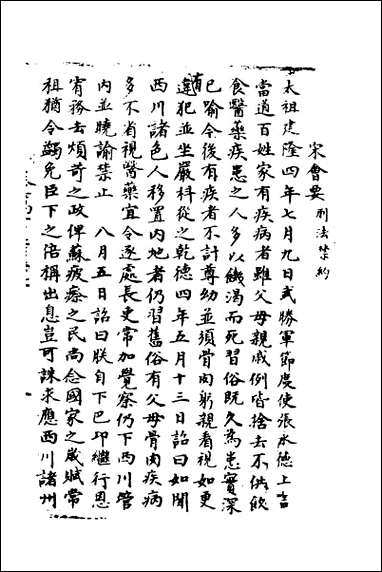 宋會要 刑法禁約
太祖建隆四年七月九日武勝軍節度使張永德上言
當道百姓家有疾病者雖父母親戚例皆捨去不供飲
食醫藥疾患之人多以饑渴而死習俗既久為患實深
已喻令後有疾者不計尊幼並須骨肉躬親看視如更有
違犯並坐嚴科從之乾德四年五月十三日詔曰如聞
西川諸色人移置內地者仍習舊俗有父母骨肉疾病
多不省視醫藥宜令逐處長吏常加覺察仍下西川管
內並曉諭禁止 八月五日詔曰朕自下巴邛繼行恩
宥務去煩苛之政俾蘇疲瘵之民尚念國家之歲賦常
祖猶令蠲免臣下之倍稱出息豈可誅求應西川諸州